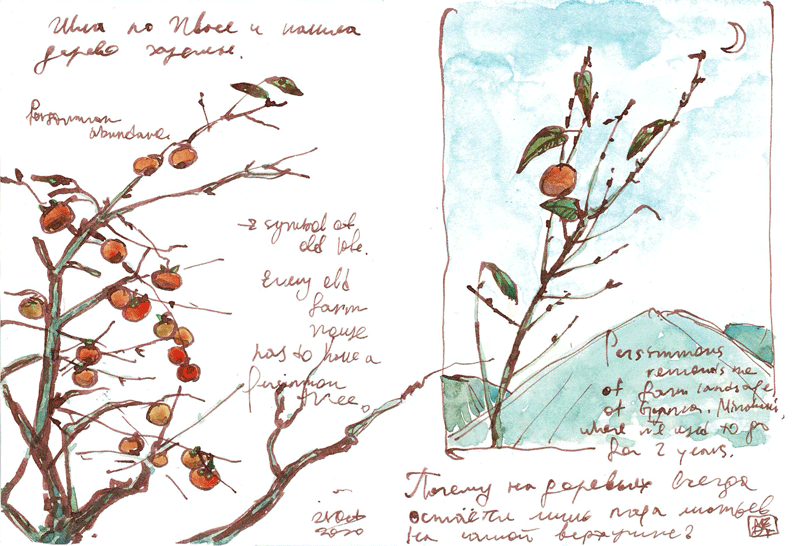 Шла по и нашла
дерево хурмы.
Persimmon
abundance.
symbol of
old
Every old
farm
house
has to have a
persimmon
tree.
Oct
2020
Persimmons
reminds me
of farm landscape
of
where we used to go
for 2 years.
Почему на деревьях всегда
остаётся лишь пара листьев
на самой верхушке?